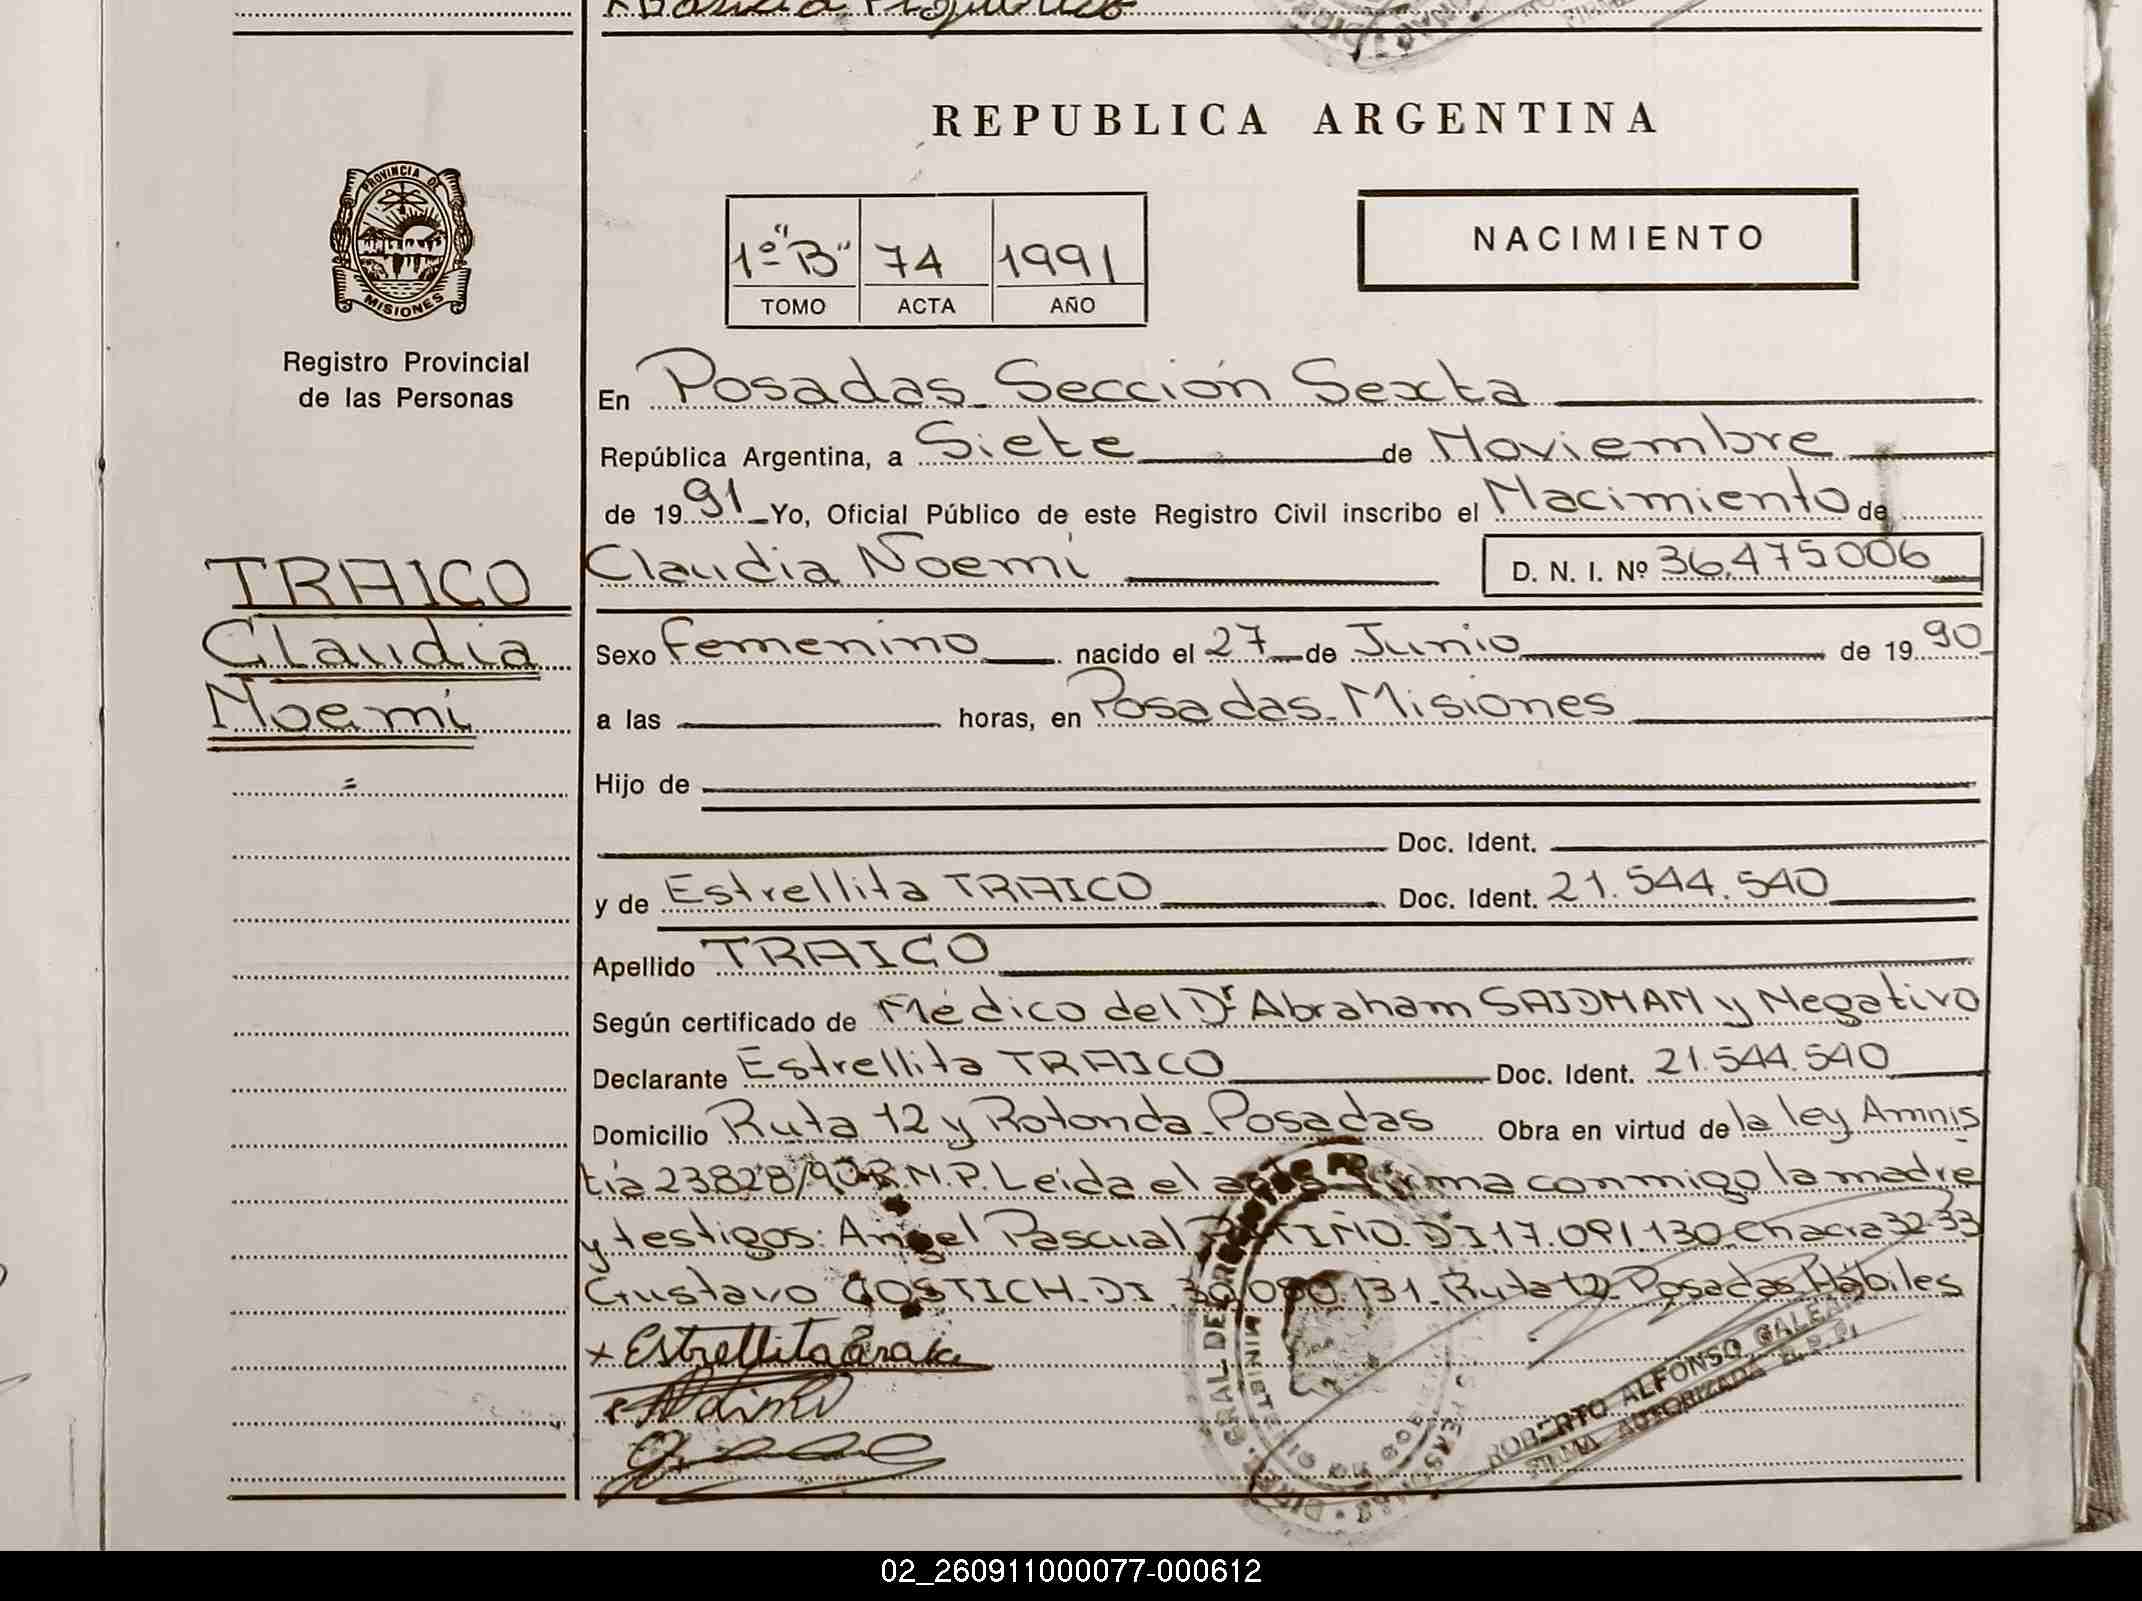 REPUBLICA ARGENTINA
PROVINCIA DE
MISIONES
Registro Provincial
de las Personas
1º "B" 74 1991
TOMO ACTA AÑO
NACIMIENTO
En Posadas Sección Sexta
República Argentina, a Siete de Noviembre
de 1991 Yo, Oficial Público de este Registro Civil inscribo el Nacimiento de
TRAICO
Claudia
Noemi
Claudia Noemi D. N. I. Nº 36.475006
Sexo Femenino nacido el 27 de Junio de 1990
a las horas, en Posadas Misiones
Hijo de
Doc. Ident.
y de Estrellita TRAICO Doc. Ident. 21.544.540
Apellido TRAICO
Según certificado de Médico del Dr Abraham SAIDMAN y Negativo
Declarante Estrellita TRAICO Doc. Ident. 21.544.540
Domicilio Ruta 12 y Rotonda Posadas Obra en virtud de la ley Amnis
tía 23828/90 R.N.P. Leída el acta firma conmigo la madre
y testigos: Angel Pascual DI 17.091.130 Chacra 32-33
Gustavo COSTICH. DI Ruta 12 Posadas Hábiles
Estrellita
ROBERTO ALFONSO GALEANO
FIRMA AUTORIZADA R. P. P.
02_260911000077-000612